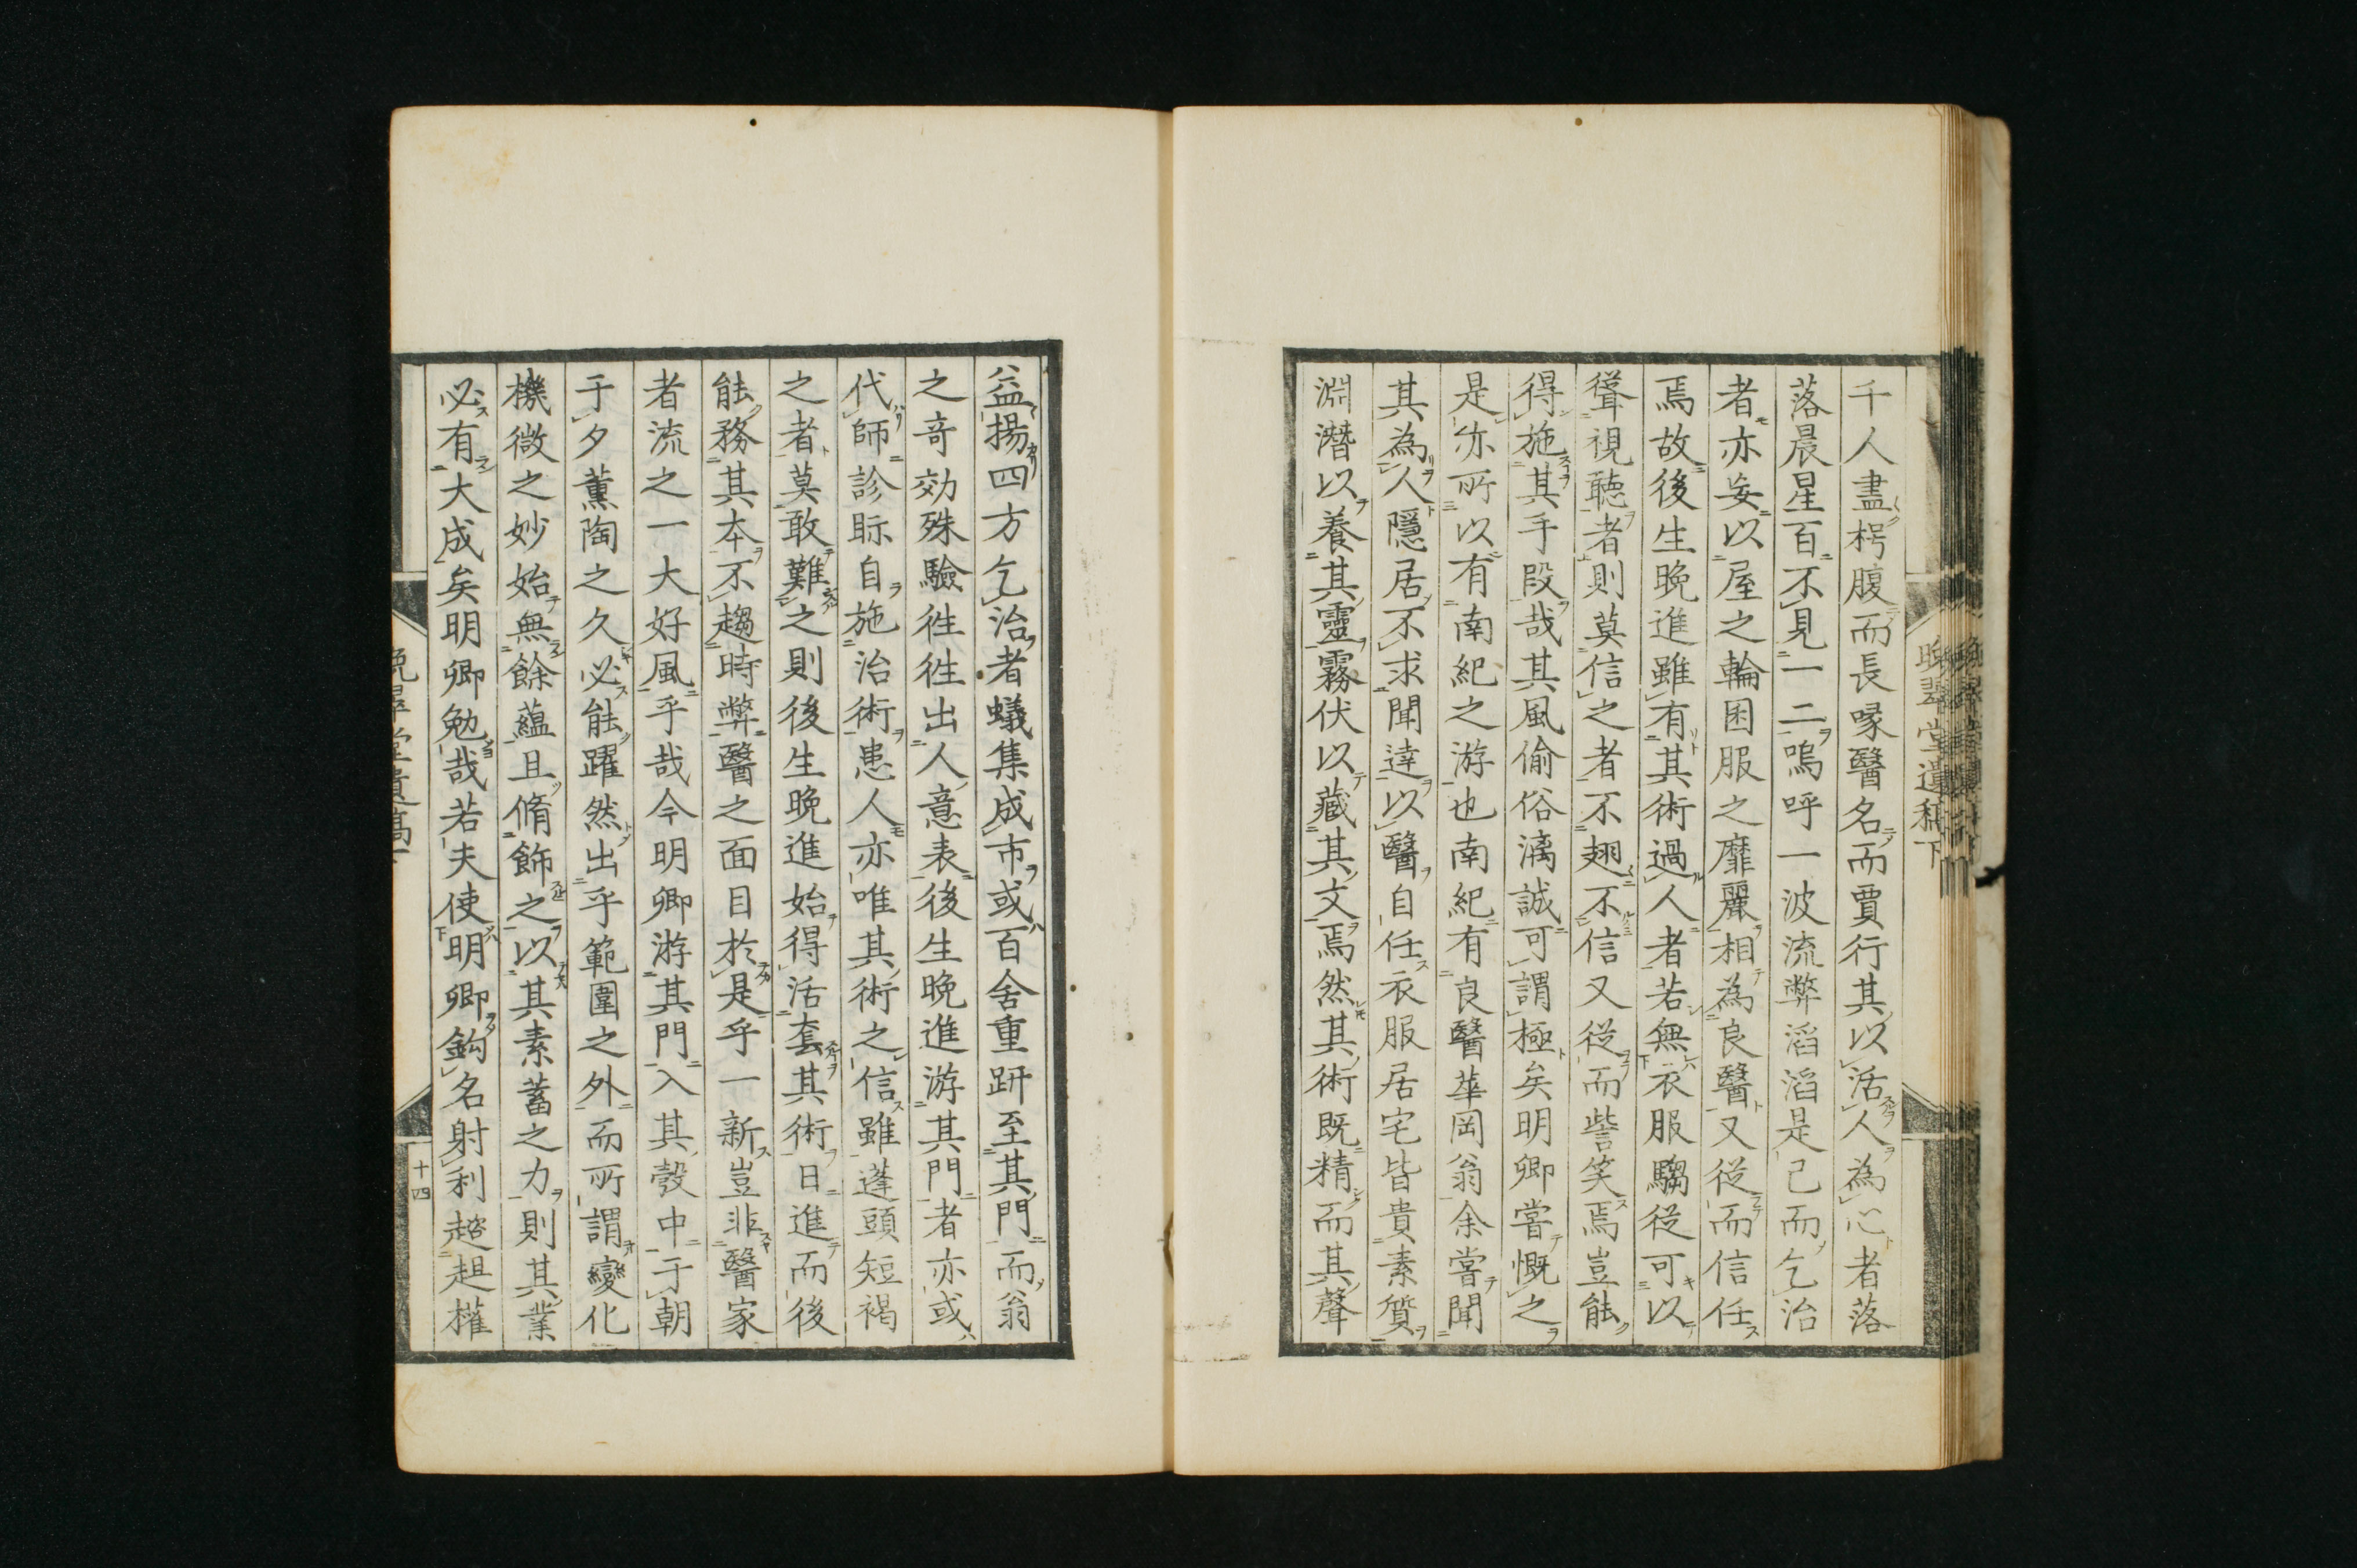 千人盡枵腹而長喙醫名而賈行其以活人為心者落
落晨星百不見一二嗚呼一波流弊滔滔是已而乞治
者亦妄以屋之輪囷服之靡麗相為良醫又從而信任
焉故後生晚進雖有其術過人者若無衣服騶從可以
聳視聽者則莫信之者不翅不信又從而訾笑焉豈能
得施其手段哉其風偷俗漓誠可謂極矣明卿嘗慨之
是亦所以有南紀之游也南紀有良醫華岡翁余嘗聞
其為人隱居不求聞達以醫自任衣服居宅皆貴素質
淵潛以養其靈霧伏以藏其文焉然其術既精而其聲
益揚四方乞治者蟻集成市或百舍重趼至其門而翁
之奇効殊驗徃徃出人意表後生晚進游其門者亦或
代師診眎自施治術患人亦唯其術之信雖蓬頭短褐
之者莫敢難之則後生晚進始得活套其術日進而後
能務其本不趨時弊醫之面目於是乎一新豈非醫家
者流之一大好風乎哉今明卿游其門入其彀中于朝
于夕薫陶之久必能躍然出乎範圍之外而所謂變化
機微之妙始無餘蘊且脩飾之以其素蓄之力則其業
必有大成矣明卿勉哉若夫使明卿鈎名射利趦趄權
晚翠堂遺稿下
十四